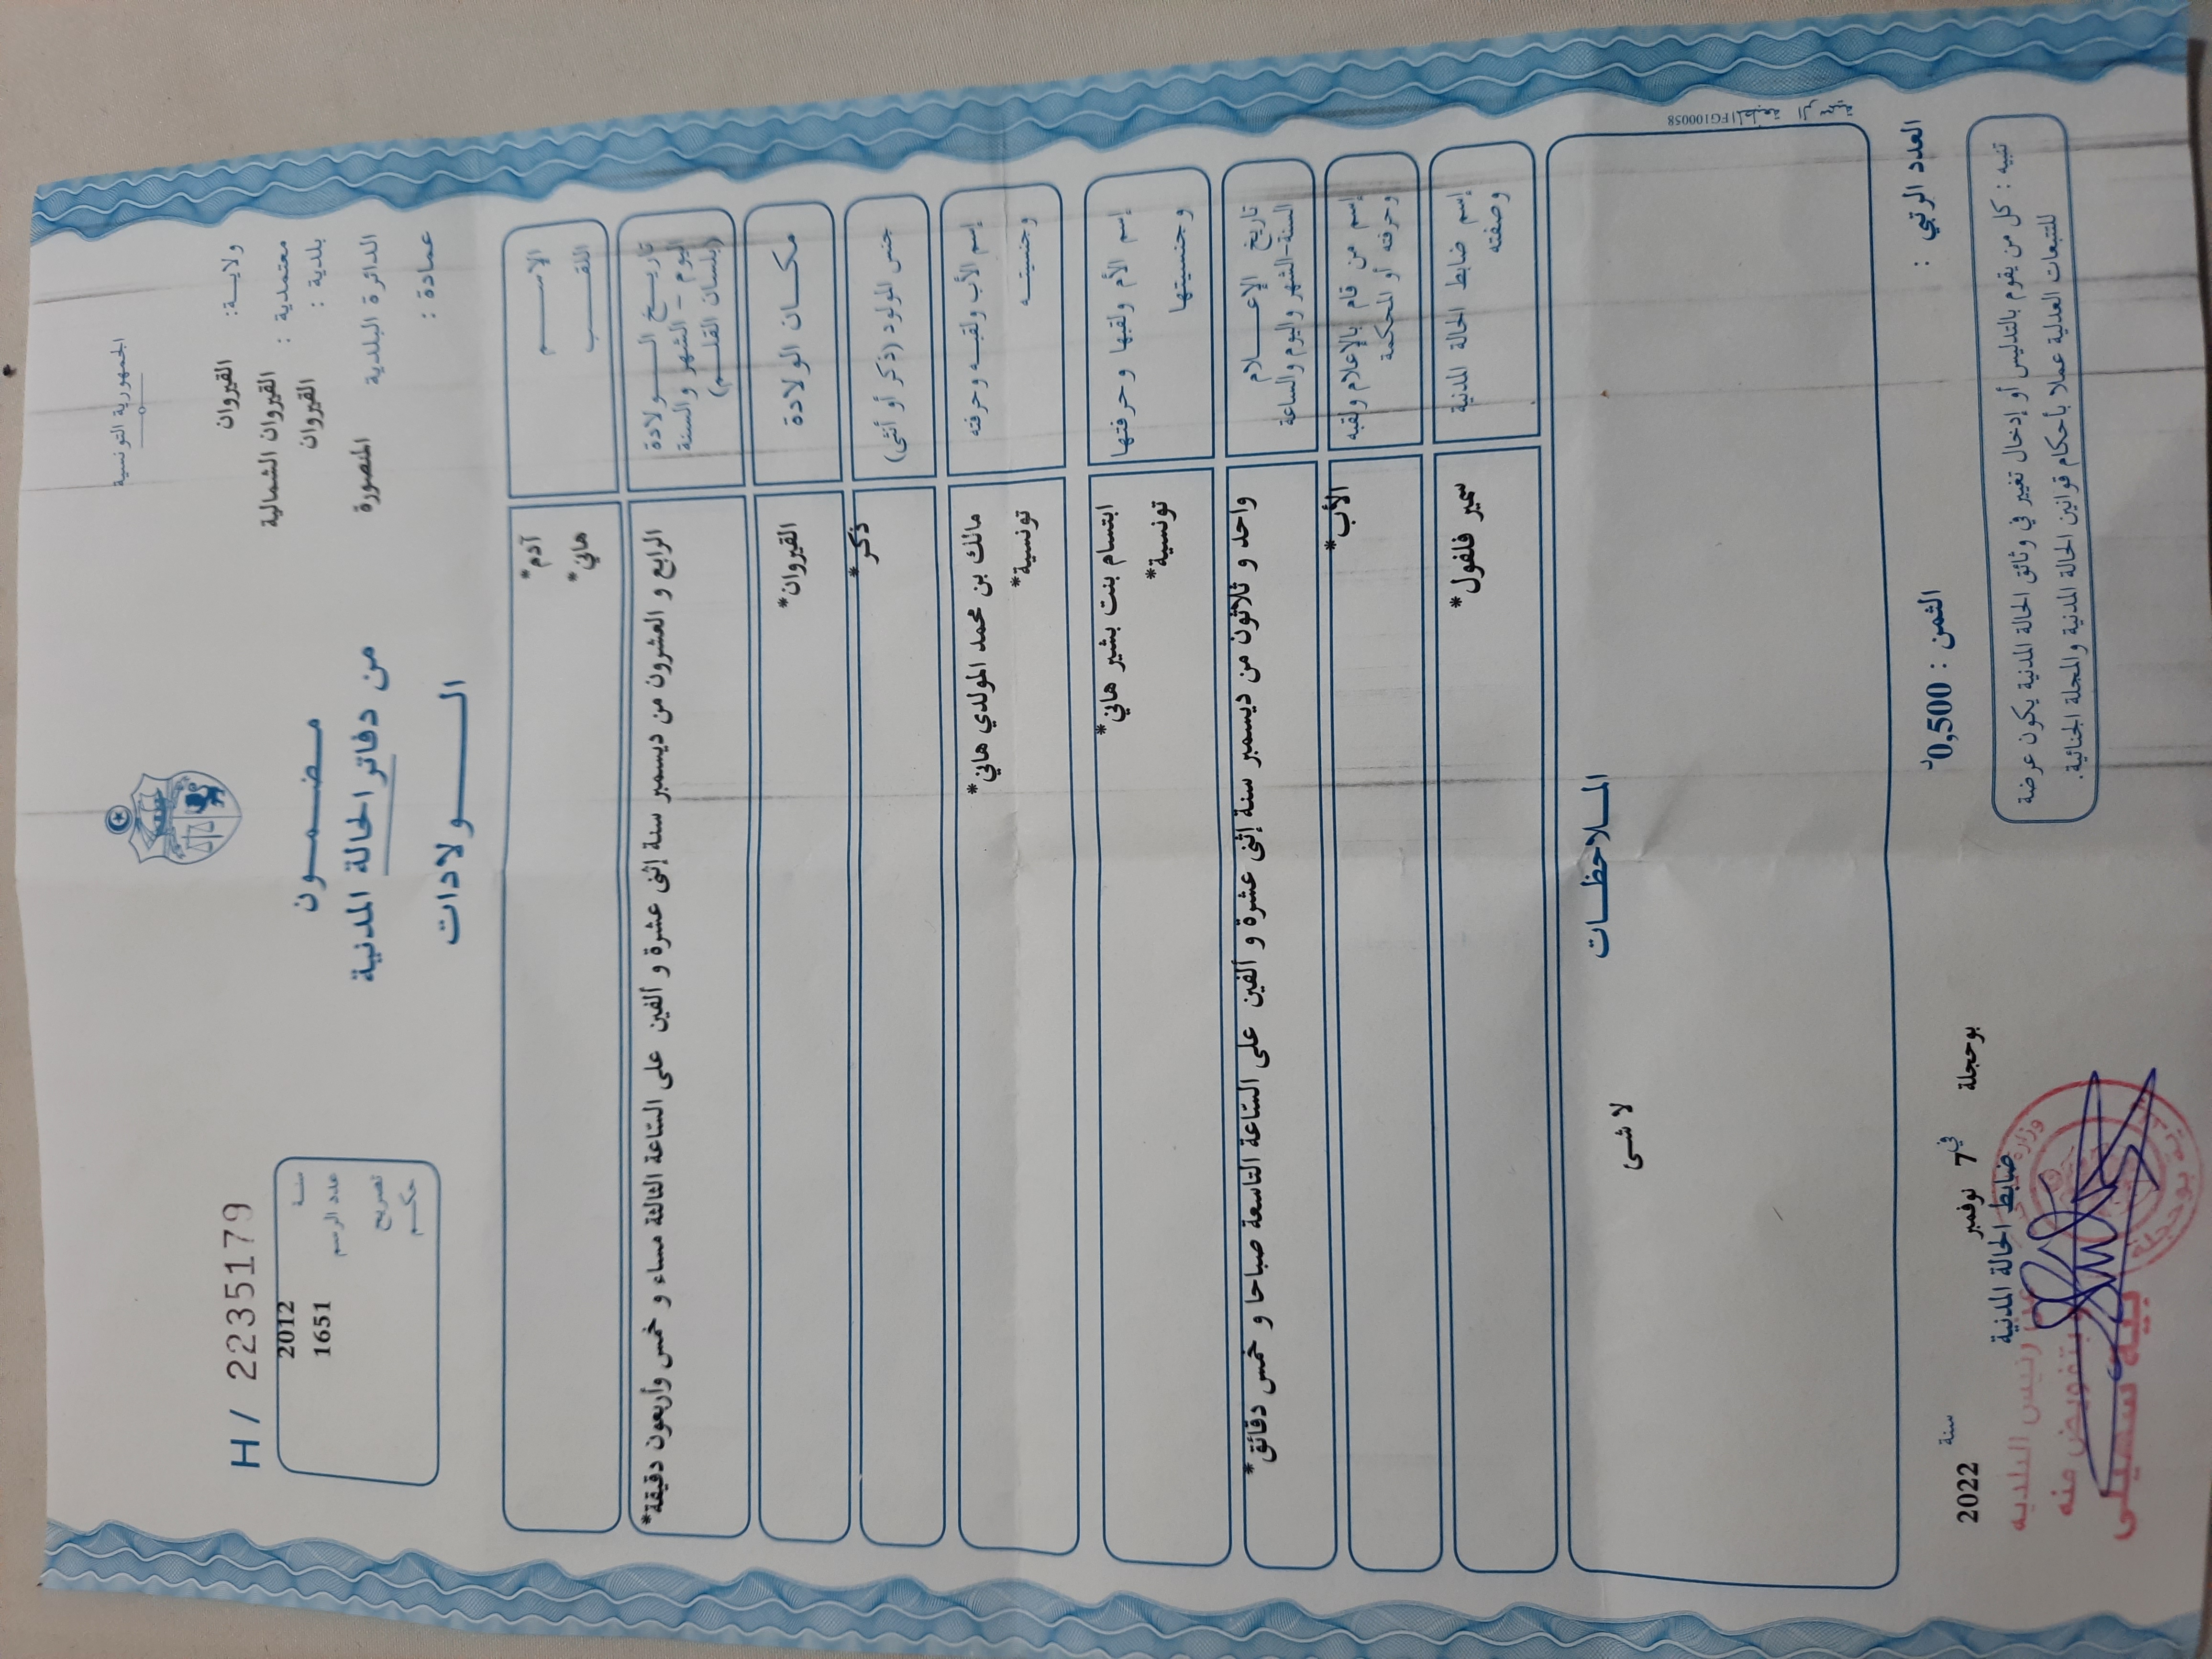 الجمهورية التونسية
ولايـة: القيروان
معتمدية : القيروان الشمالية
بلدية : القيروان
الدائرة البلدية المنصورة
عمادة :
مـضـمـون
من دفاتر الحالة المدنية
الـولادات
H/ 2235179
سنـة 2012
عدد الرسم 1651
تصريح
حكـم
الاسـم آدم*
اللقـب هاني*
تاريـخ الـولادة
(اليوم - الشهر والسنة
بلسان القلـم)
الرابع و العشرون من ديسمبر سنة إثنى عشرة و ألفين على السّاعة الثالثة مساء و خمس وأربعون دقيقة*
مكـان الولادة القيروان*
جنس المولود (ذكر أو أنثى) ذكر*
إسم الأب ولقبـه وحرفته مالك بن محمد المولدي هاني*
وجنسيتـه تونسية*
إسم الأم ولقبها وحرفتها ابتسام بنت بشير هاني*
وجنسيتها تونسية*
تاريخ الإعـلام
السنة-الشهر واليوم والساعة
واحد و ثلاثون من ديسمبر سنة إثنى عشرة و ألفين على السّاعة التاسعة صباحا و خمس دقائق*
إسم من قام بالإعلام ولقبه الأب*
وحرفته أو المحكمة
إسم ضابط الحالة المدنية سمير فلفول*
وصفته
الملاحظـات
لا شى
FG100058
العدد الرتبي :
الثمن : 0,500د
بوحجلة في 7 نوفمبر سنة 2022
ضابط الحالة المدنية
تنبيه : كل من يقوم بالتدليس أو إدخال تغيير في وثائق الحالة المدنية يكون عرضة
للتتبعات العدلية عملا بأحكام قوانين الحالة المدنية والمجلة الجنائية.
رئيس البلدية
بتفويض منه